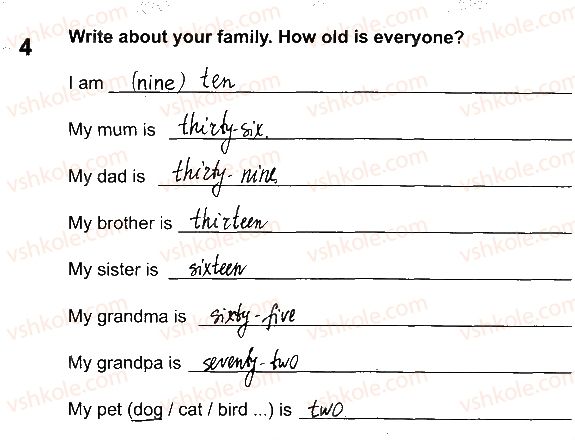 4 Write about your family. How old is everyone?
I am (nine) ten
My mum is thirty-six.
My dad is thirty-nine
My brother is thirteen
My sister is sixteen
My grandma is sixty-five
My grandpa is seventy-two
My pet (dog / cat / bird ...) is two
vshkole.com